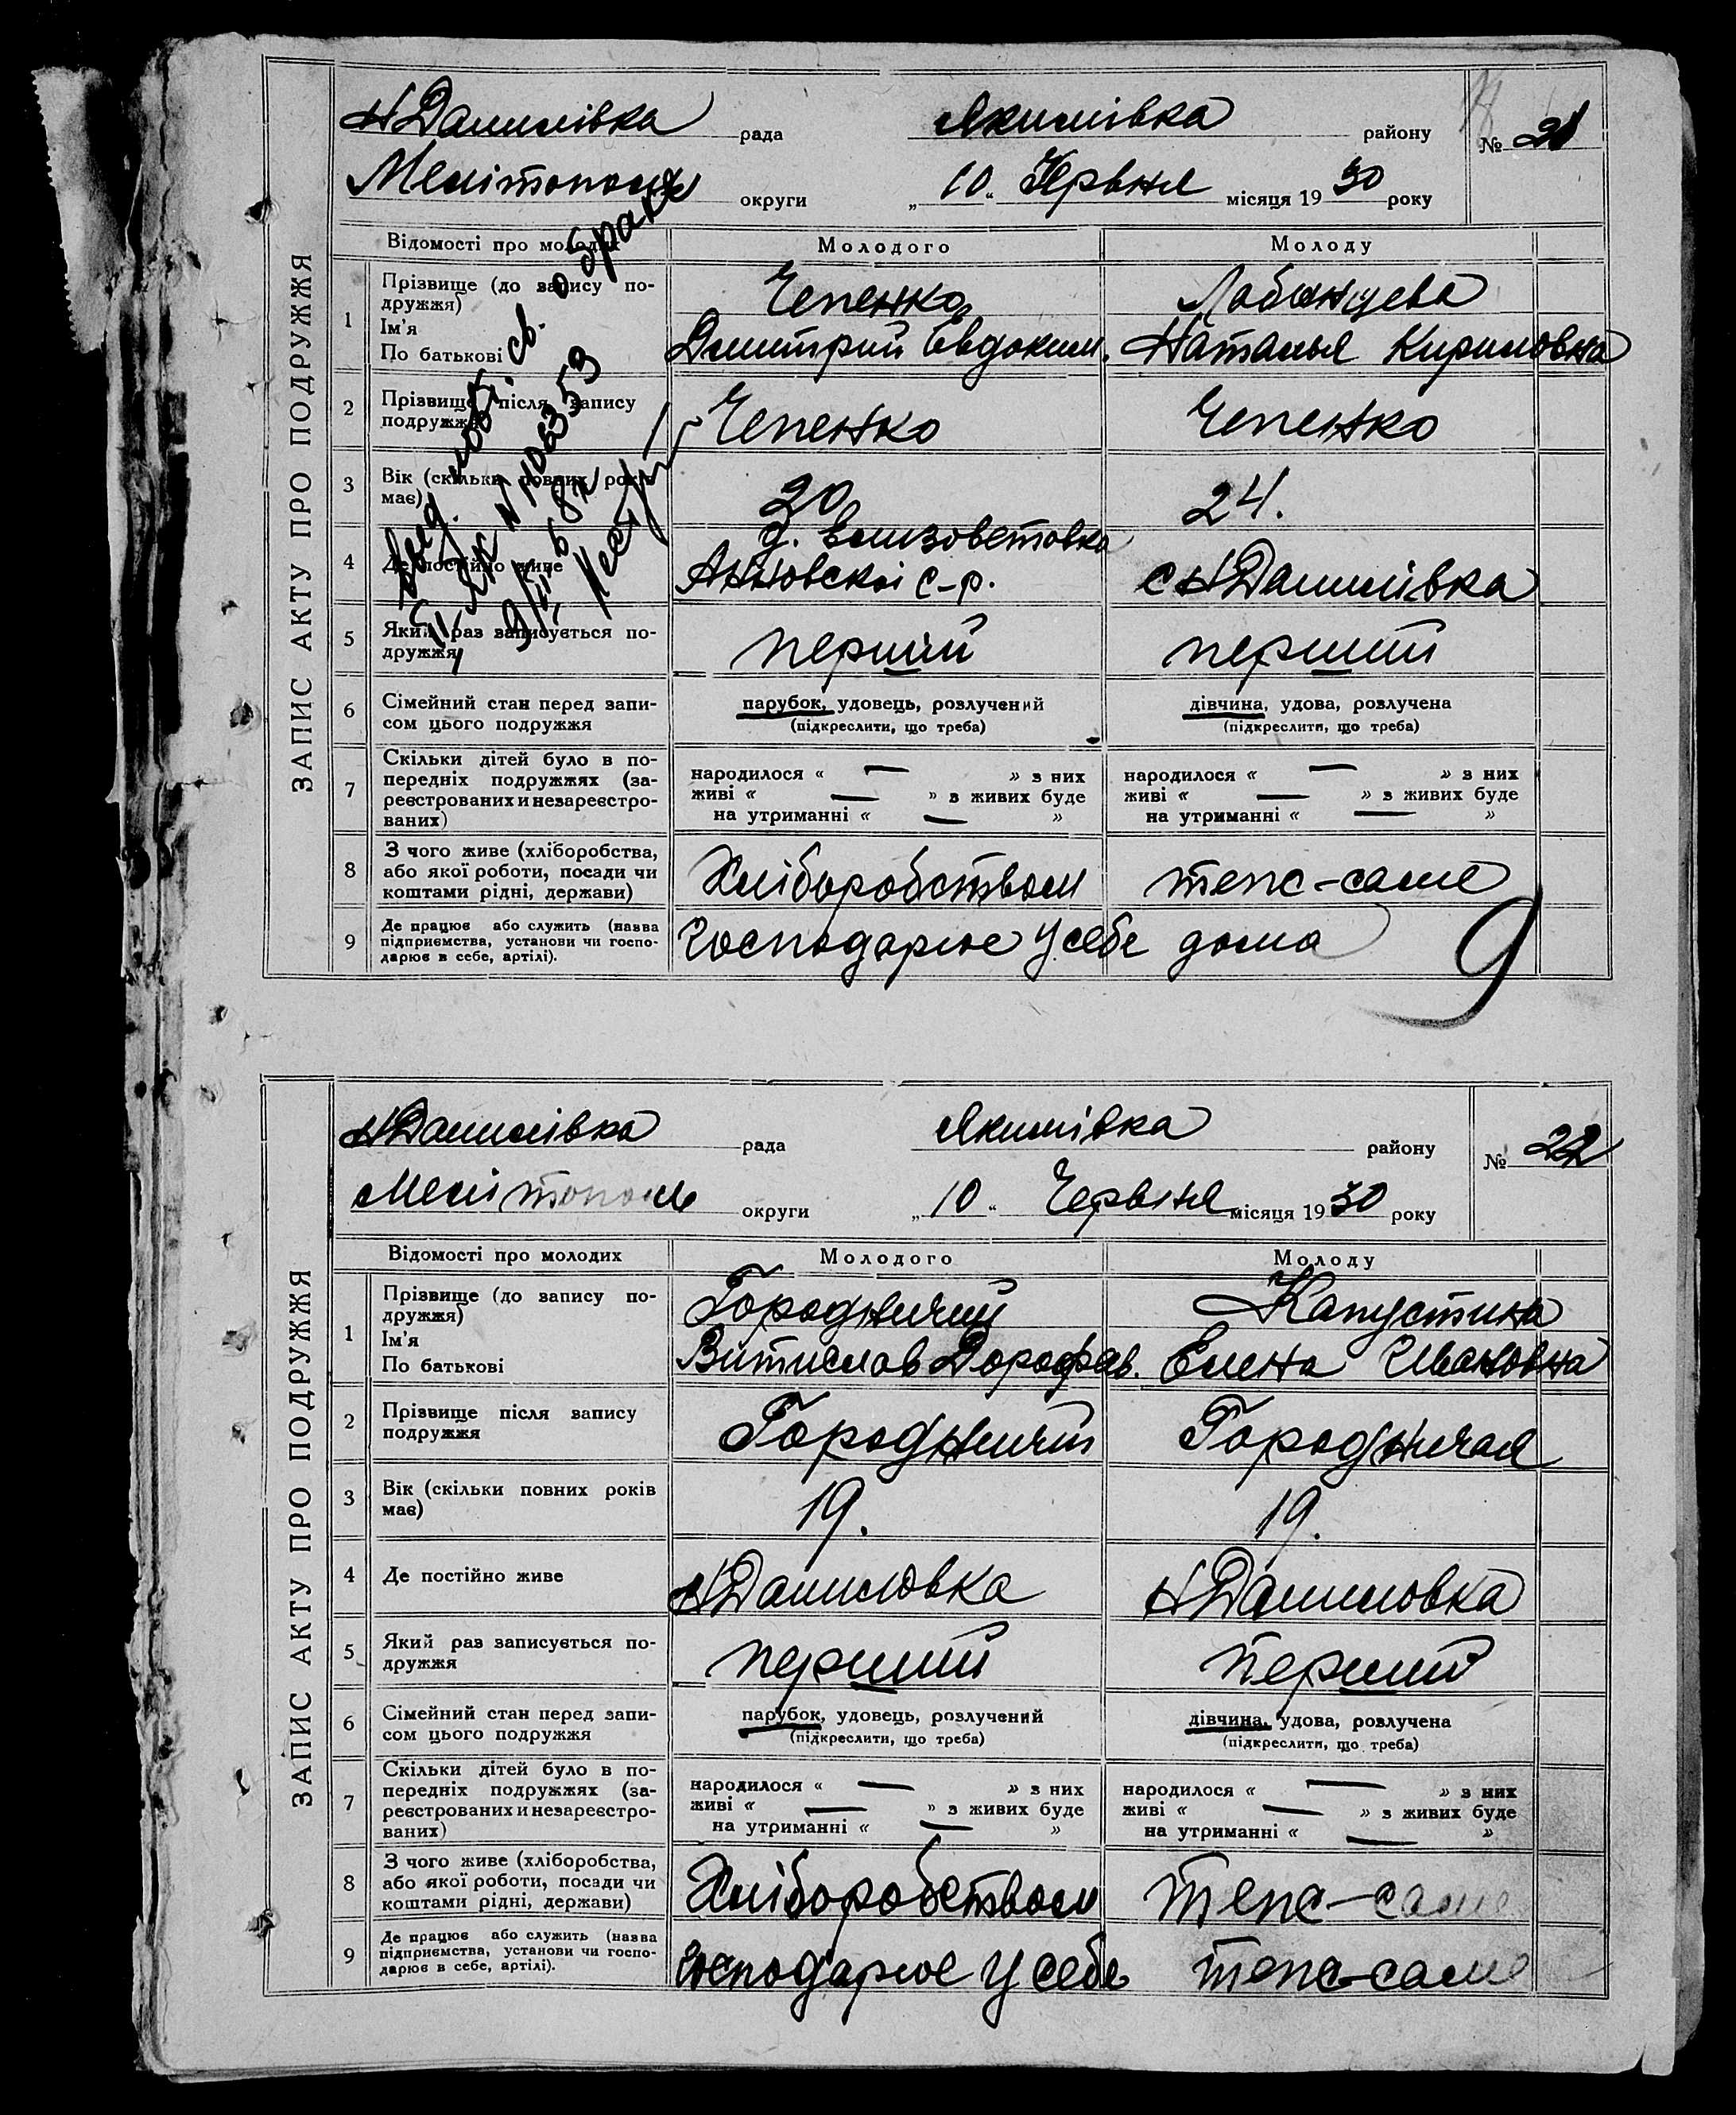 ЗАПИС АКТУ ПРО ПОДРУЖЖЯ
НДанилівка рада Якимівка району № 21
Мелітополь округи „10“ Червня місяця 1930 року
Відомості про молодих Молодого Молоду
1 Прізвище (до запису по-
дружжя) Чепенко Лобанцева
Ім'я
По батькові Дмитрий Евдоким. Наталья Кириловна
2 Прізвище після запису
подружжя Чепенко Чепенко
3 Вік (скільки повних років
має) 20 24.
4 Де постійно живе д. Елизоветовка
Анновскоі с-р. с НДанилівка
5 Який раз записується по-
дружжя перший перший
6 Сімейний стан перед запи-
сом цього подружжя
парубок, удовець, розлучений дівчина, удова, розлучена
(підкреслити, що треба) (підкреслити, що треба)
7 Скільки дітей було в по-
передніх подружжях (за-
реєстрованих и незареєстро-
ваних)
народилося « — » з них народилося « — » з них
живі « — » з живих буде живі « — » з живих буде
на утриманні « — » на утриманні « — »
8 З чого живе (хліборобства,
або якої роботи, посади чи
коштами рідні, держави) Хліборобством тепс-саме
9 Де працює або служить (назва
підприємства, установи чи госпо-
дарює в себе, артілі). Господарює у себе дома
9
св. о браке
N 106353
ЗАПИС АКТУ ПРО ПОДРУЖЖЯ
НДанилівка рада Якимівка району № 22
Мелітополь округи „10“ Червня місяця 1930 року
Відомості про молодих Молодого Молоду
1 Прізвище (до запису по-
дружжя) Городничий Капустина
Ім'я
По батькові Витислав Дорофев. Елена Ивановна
2 Прізвище після запису
подружжя Городничий Городничая
3 Вік (скільки повних років
має) 19. 19.
4 Де постійно живе НДаниловка НДаниловка
5 Який раз записується по-
дружжя перший перший
6 Сімейний стан перед запи-
сом цього подружжя
парубок, удовець, розлучений дівчина, удова, розлучена
(підкреслити, що треба) (підкреслити, що треба)
7 Скільки дітей було в по-
передніх подружжях (за-
реєстрованих и незареєстро-
ваних)
народилося « — » з них народилося « — » з них
живі « — » з живих буде живі « — » з живих буде
на утриманні « — » на утриманні « — »
8 З чого живе (хліборобства,
або якої роботи, посади чи
коштами рідні, держави) Хліборобством тепс-саме
9 Де працює або служить (назва
підприємства, установи чи госпо-
дарює в себе, артілі). Господарює у себе тепс-саме